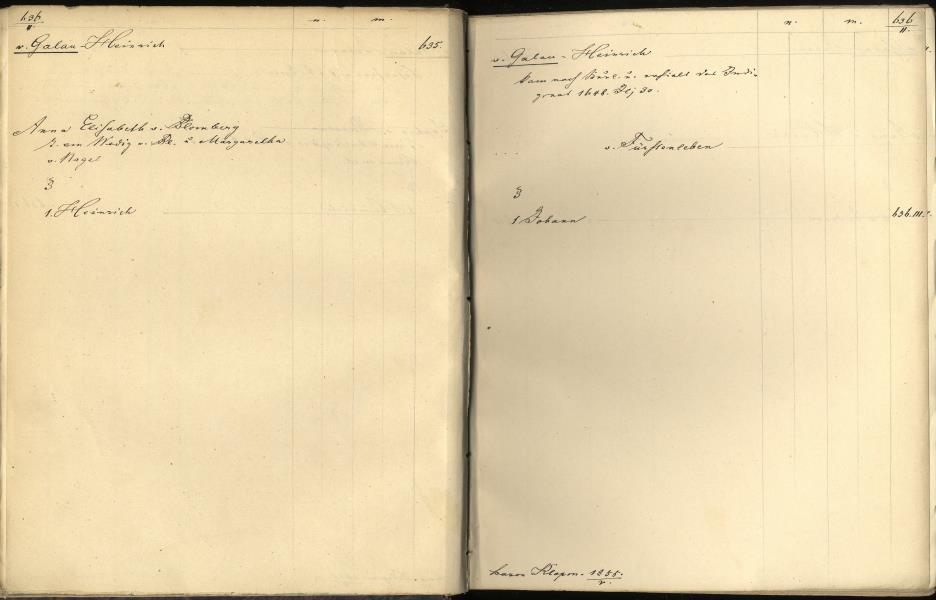 636
II.
n. m.
v. Galau-Heinrich 635.
Anna Elisabeth v. Blomberg
v. Bl. u. Margaretha
v. Nagel
3
1. Heinrich
n. m. 636
II.
v. Galau-Heinrich
kam nach Kurl. u. erhielt das Indi-
genat 1648. Julj 30.
v. Fürstenleben
3
1 Johann 636.III.
1855.